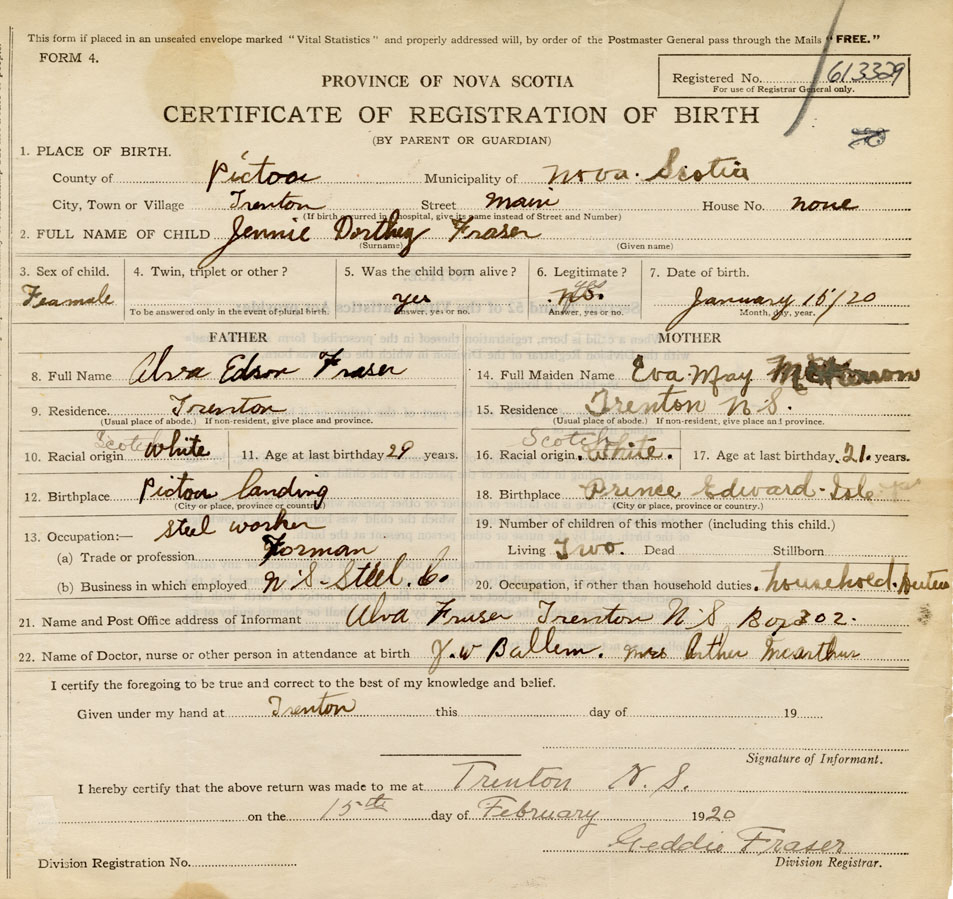 This form if placed in an unsealed envelope marked "Vital Statistics" and properly addressed will, by order of the Postmaster General pass through the Mails "FREE."
FORM 4.
Registered No. 613329
For use of Registrar General only.
PROVINCE OF NOVA SCOTIA
CERTIFICATE OF REGISTRATION OF BIRTH
(BY PARENT OR GUARDIAN)
1. PLACE OF BIRTH.
County of Pictou Municipality of Nova Scotia
City, Town or Village Trenton Street Main House No. none
(If birth occurred in hospital, give its name instead of Street and Number)
2. FULL NAME OF CHILD Jennie Dorthey Fraser
(Surname) (Given name)
3. Sex of child. 4. Twin, triplet or other? 5. Was the child born alive? 6. Legitimate? 7. Date of birth.
Feamale yes yes No. January 15/20
To be answered only in the event of plural birth. Answer, yes or no. Answer, yes or no. Month, day, year.
FATHER MOTHER
8. Full Name Alva Edson Fraser 14. Full Maiden Name Eva May
9. Residence. Trenton 15. Residence Trenton N.S.
(Usual place of abode.) If non-resident, give place and province. (Usual place of abode.) If non-resident, give place and province.
10. Racial origin Scotch white 11. Age at last birthday 29 years. 16. Racial origin. Scotch White. 17. Age at last birthday. 21. years.
12. Birthplace Pictou landing 18. Birthplace Prince Edward Isle
(City or place, province or country) (City or place, province or country.)
13. Occupation:— Steel worker 19. Number of children of this mother (including this child.)
(a) Trade or profession Forman Living Two. Dead Stillborn
(b) Business in which employed N S Steel. Co. 20. Occupation, if other than household duties. household. Duties
21. Name and Post Office address of Informant Alva Fraser Trenton N S Box 302.
22. Name of Doctor, nurse or other person in attendance at birth J. W Ballem. Mrs Arther Mcarthur
I certify the foregoing to be true and correct to the best of my knowledge and belief.
Given under my hand at Trenton this day of 19
Signature of Informant.
I hereby certify that the above return was made to me at Trenton N. S.
on the 15th day of February 1920
Geddie Fraser
Division Registration No. Division Registrar.